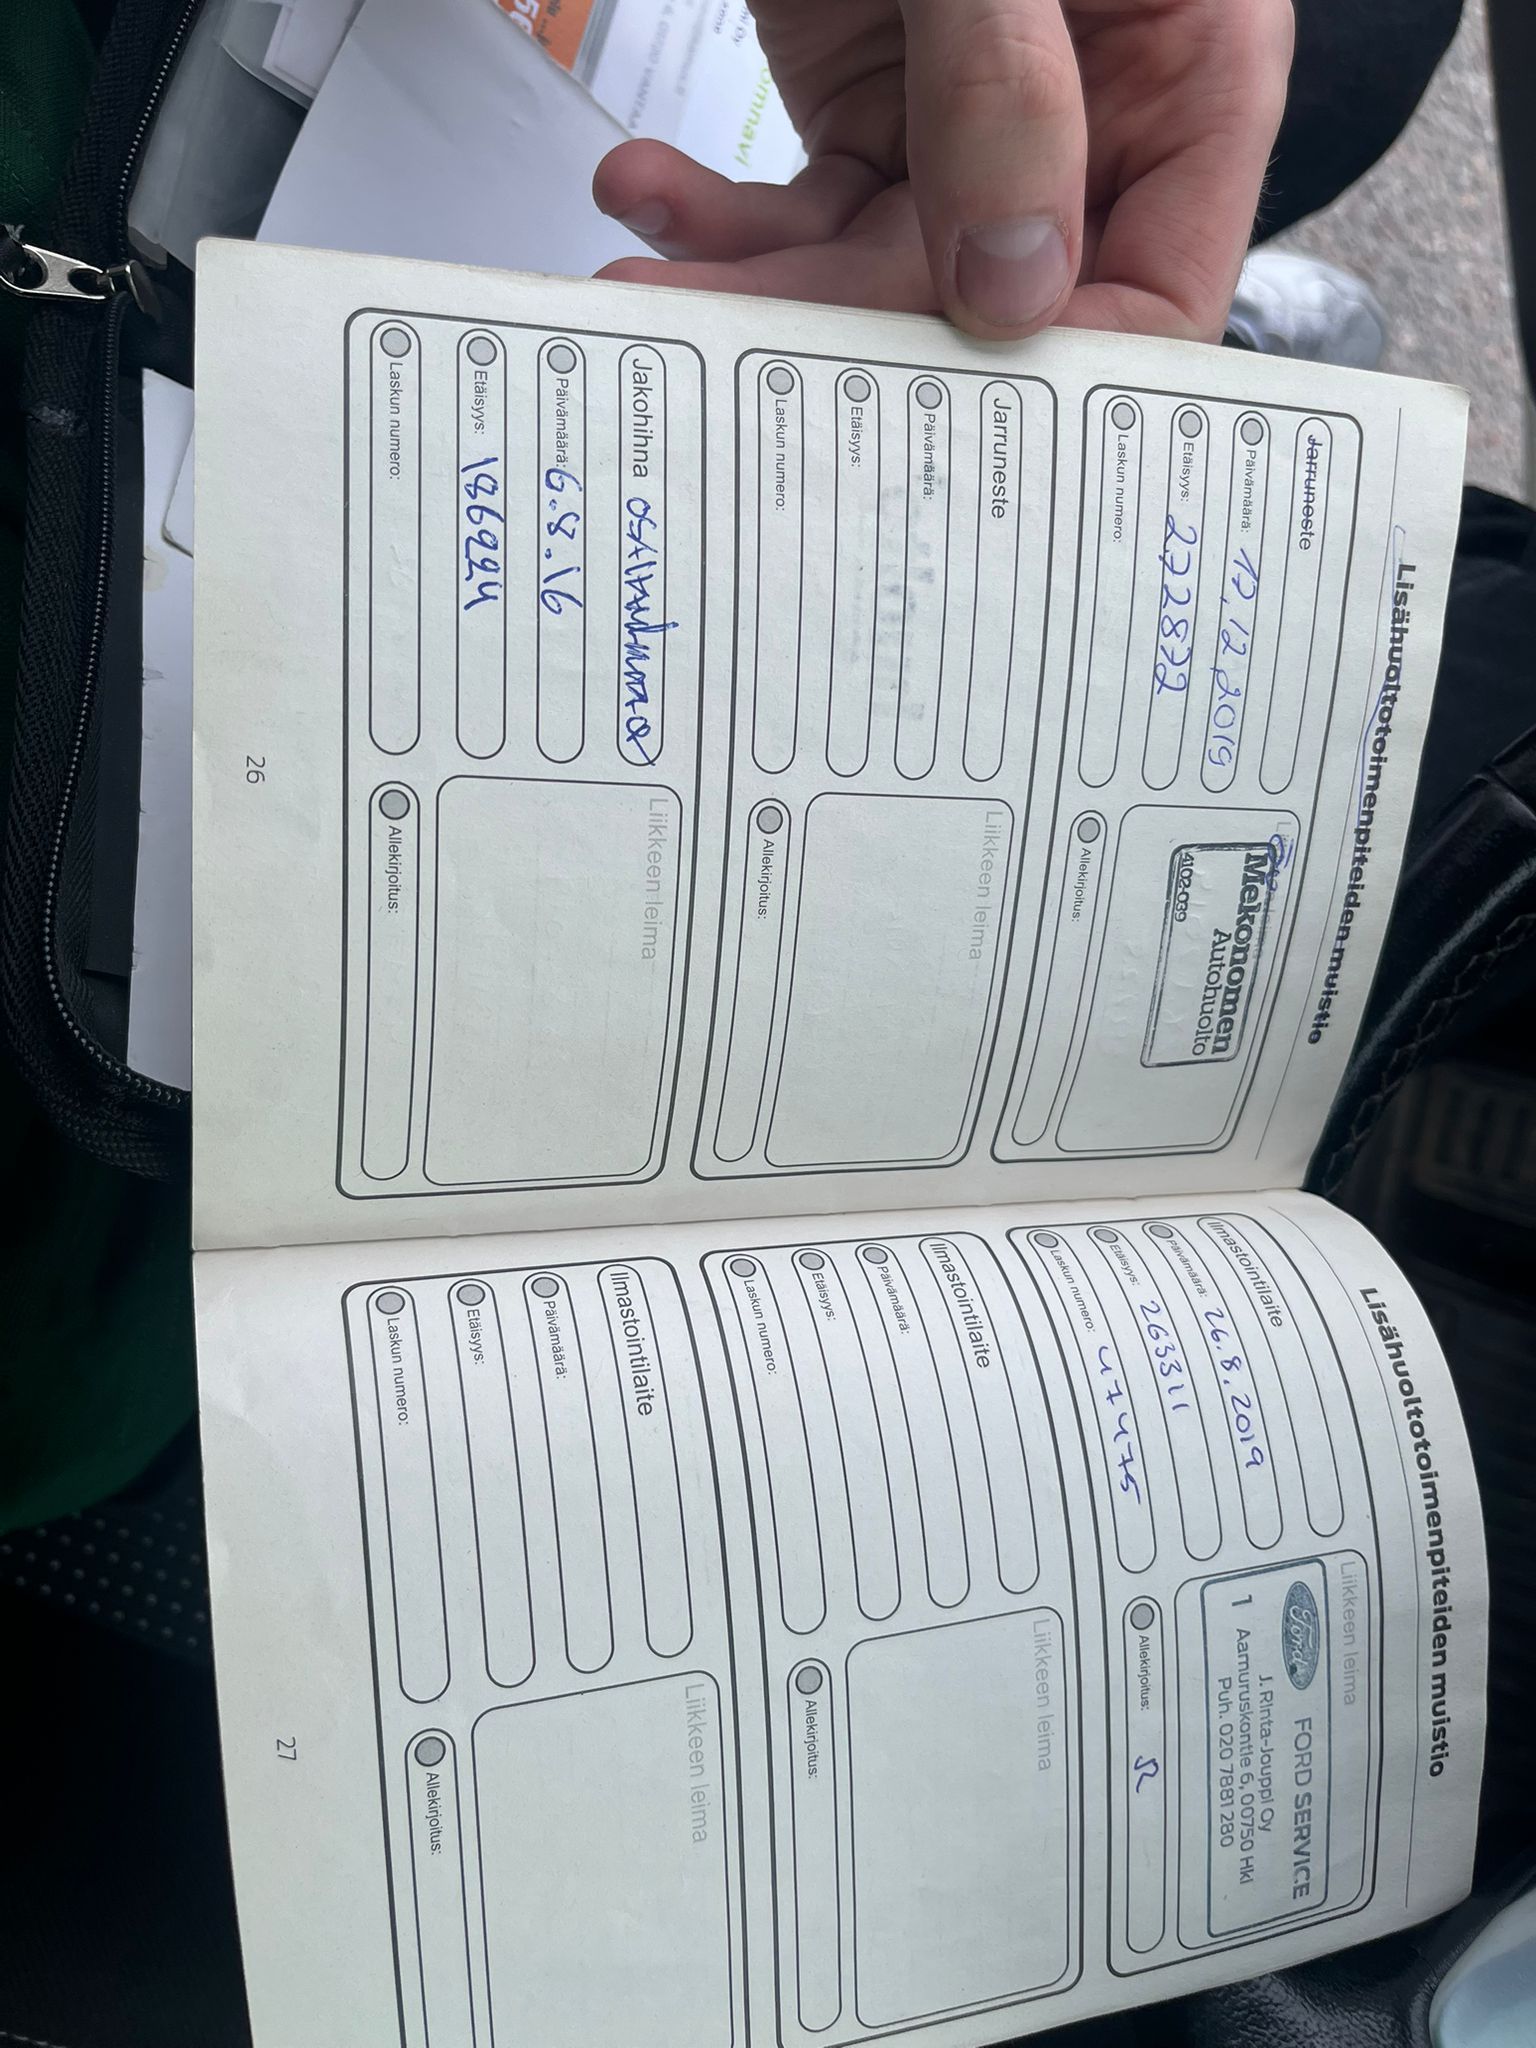 Lisähuoltotoimenpiteiden muistio
Jarruneste
Päivämäärä: 17.12.2019
Etäisyys: 272872
Laskun numero:
Mekonomen
Autohuolto
4102-039
Allekirjoitus:
Jarruneste
Päivämäärä:
Etäisyys:
Laskun numero:
Liikkeen leima
Allekirjoitus:
Jakohihna
Päivämäärä: 6.8.16
Etäisyys: 186924
Laskun numero:
Liikkeen leima
Allekirjoitus:
26
Lisähuoltotoimenpiteiden muistio
Ilmastointilaite
Päivämäärä: 26.8.2019
Etäisyys: 263311
Laskun numero: 47475
Liikkeen leima
Ford FORD SERVICE
J. Rinta-Jouppi Oy
1 Aamuruskontie 6, 00750 Hki
Puh. 020 7881 280
Allekirjoitus:
Ilmastointilaite
Päivämäärä:
Etäisyys:
Laskun numero:
Liikkeen leima
Allekirjoitus:
Ilmastointilaite
Päivämäärä:
Etäisyys:
Laskun numero:
Liikkeen leima
Allekirjoitus:
27